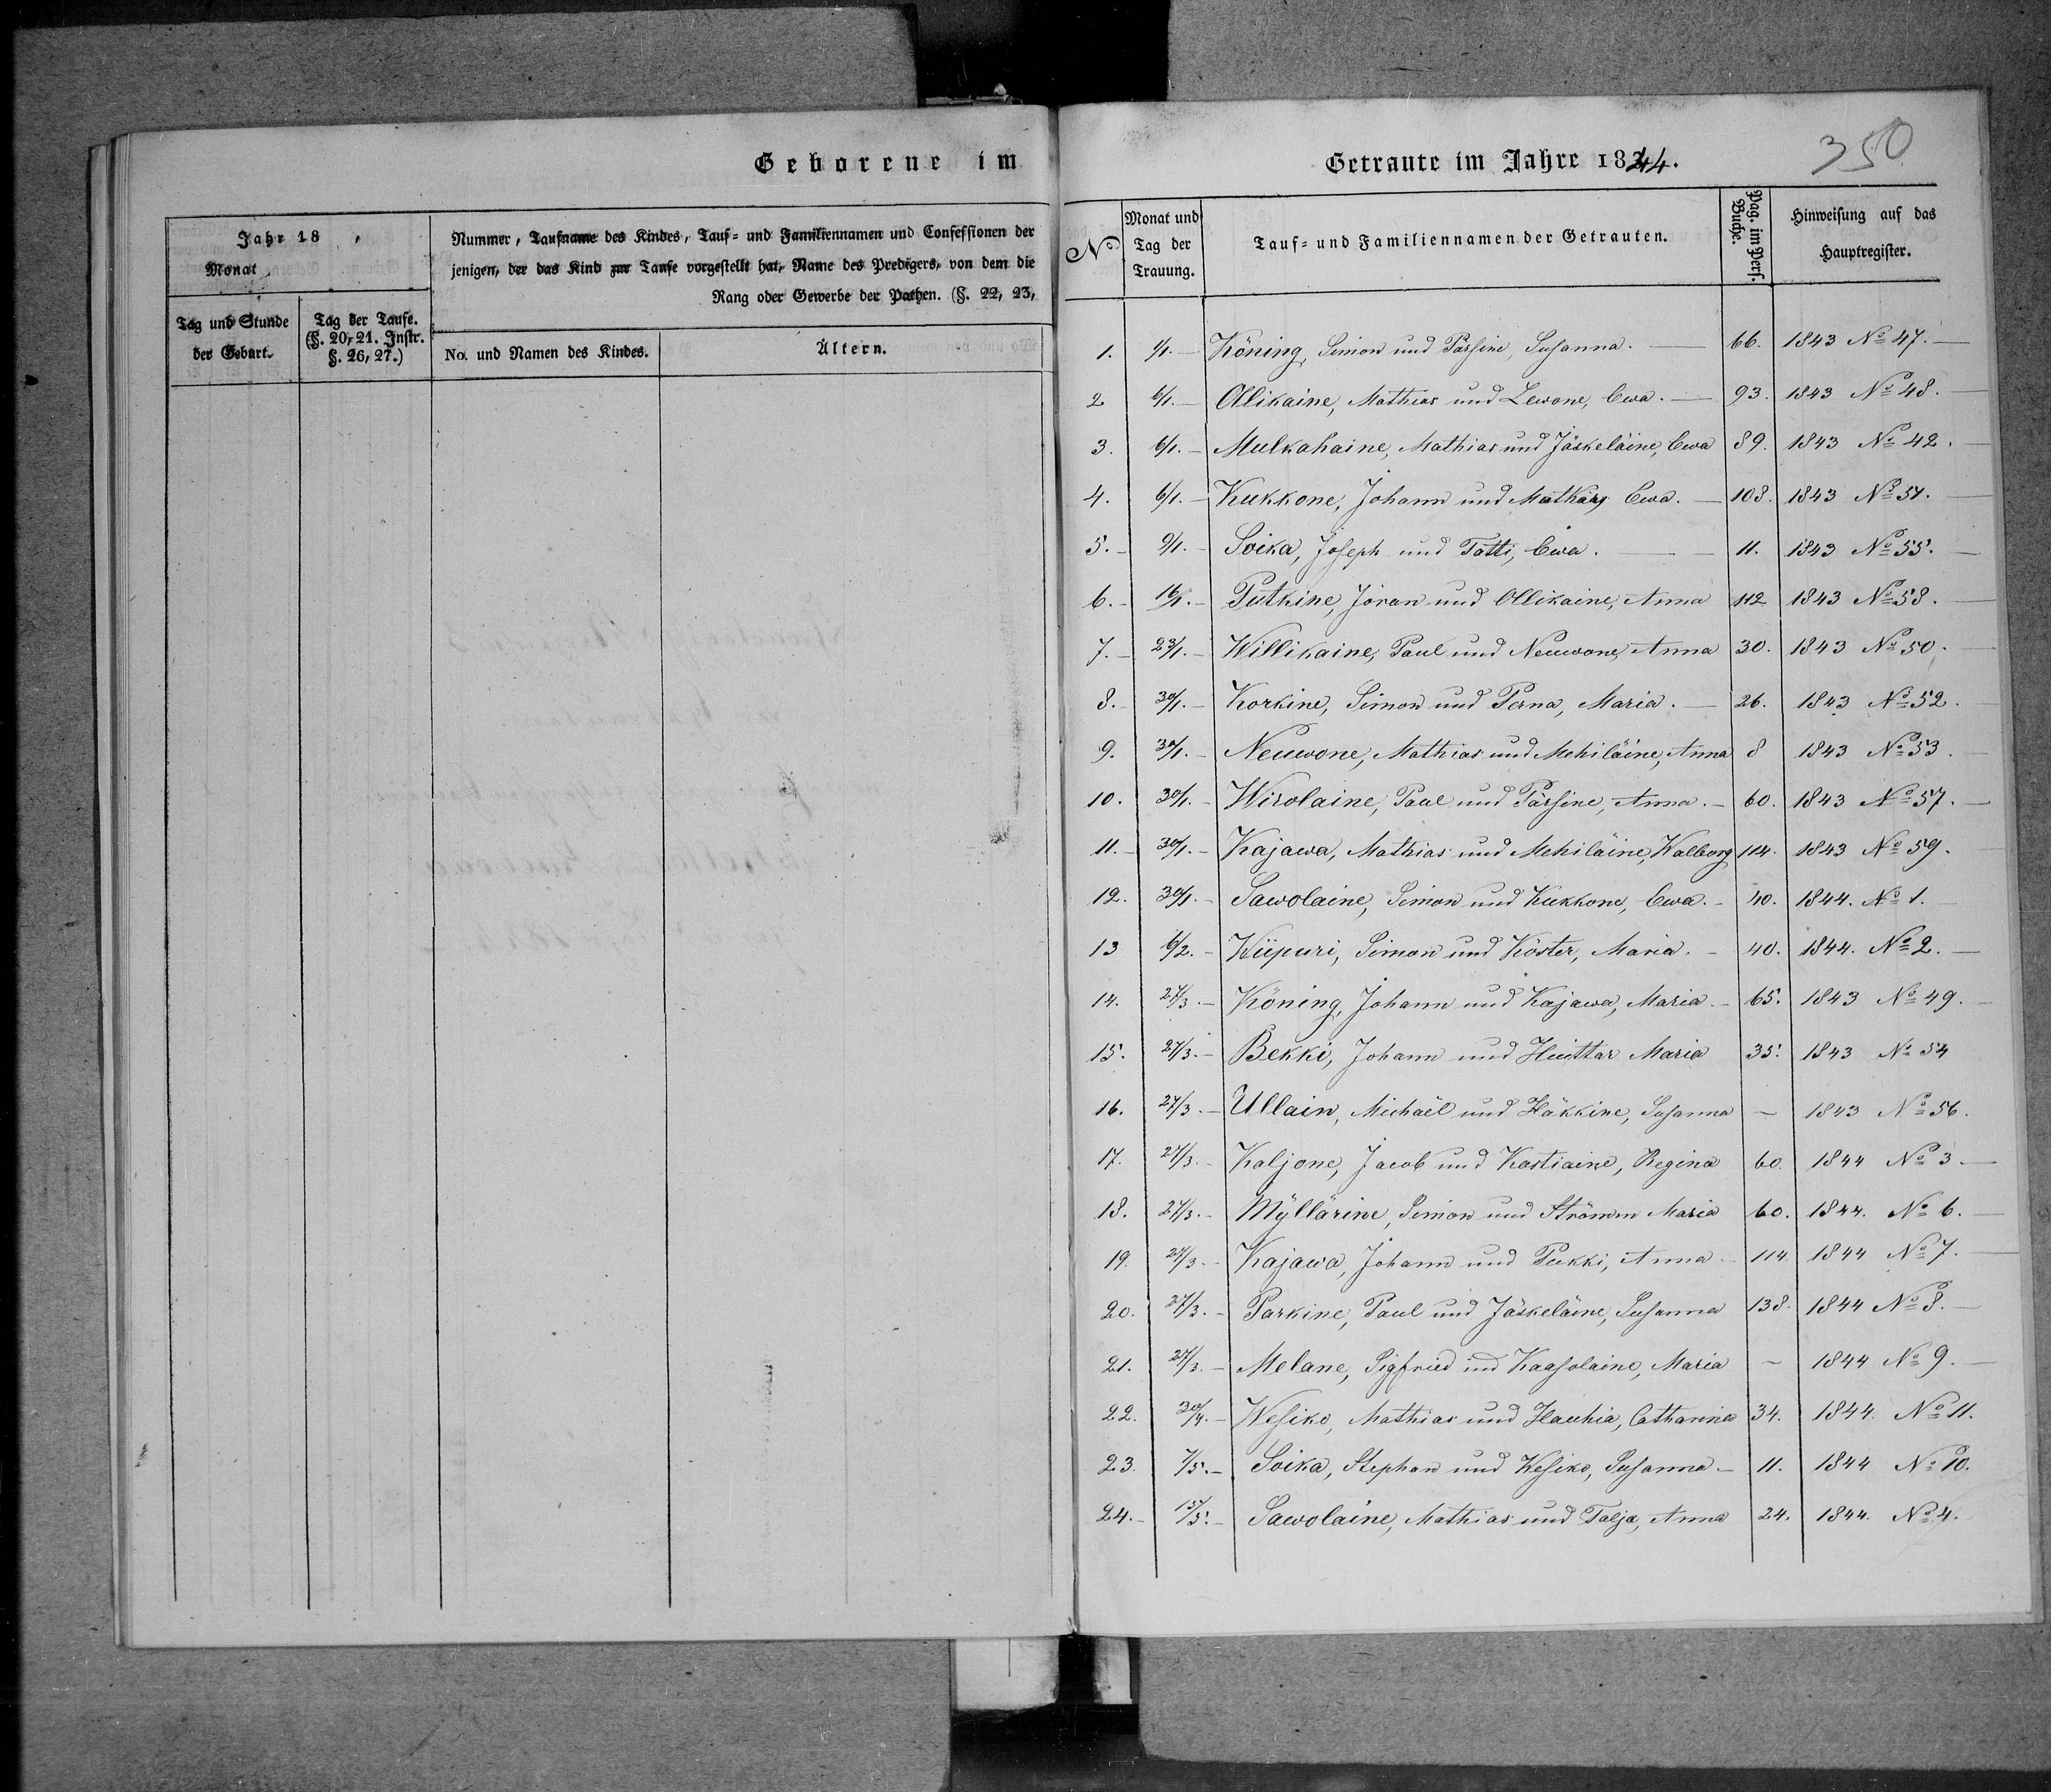 Geborene im
Jahr 18 ,
Monat
Tag und Stunde
der Geburt.
Tag der Taufe.
(§. 20, 21. Instr.
§. 26, 27.)
Nummer, Taufname des Kindes, Tauf- und Familiennamen und Confessionen der
jenigen, der das Kind zur Taufe vorgestellt hat, Name des Predigers, von dem die
Rang oder Gewerbe der Pathen. (§. 22, 23,
No. und Namen des Kindes.
Ältern.
350
Getraute im Jahre 1844.
No
Monat und
Tag der
Trauung.
Tauf- und Familiennamen der Getrauten.
Pag. im Pers.
Buche.
Hinweisung auf das
Hauptregister.
1. 1/1. – Köning, Simon und Pärsine, Susanna. – 66. 1843 No 47. –
2 6/1. – Ollikaine, Mathias und Lewone, Ewa. – 93. 1843 No 48. –
3. 6/1. – Mulkahaine, Mathias und Jäskeläine, Ewa 89. 1843 No 42. –
4. 6/1. – Kukkone, Johann und Ewa. – 108. 1843 No 51. –
5. – 9/1. – Soika, Joseph und Tatti, Ewa. – 11. 1843 No 55. –
6. – 16/1. – Putkine, Jöran und Ollikaine, Anna 112 1843 No 58. –
7. – 23/1. – Willikaine, Paul und Neuwone, Anna 30. 1843 No 50. –
8. – 30/1. – Korkine, Simon und Perna, Maria. – 26. 1843 No 52. –
9. 30/1. – Neuwone, Mathias und Mehiläine, Anna 8 1843 No 53. –
10. 30/1. – Wirolaine, Paul und Pärsine, Anna. – 60. 1843 No 57. –
11. – 30/1. – Kajawa, Mathias und Mehiläine, Walborg 114. 1843 No 59. –
12. 30/1. – Sawolaine, Simon und Kukkone, Ewa. – 40. 1844. No 1. –
13 6/2. – Wiipuri, Simon und Köster, Maria. – 40. 1844. No 2. –
14. 27/3. – Köning, Johann und Kajawa, Maria. – 65. 1843 No 49. –
15. 27/3. – Bekki, Johann und Huttar Maria 35. 1843 No 54
16. 27/3. – Ullain, Michaël und Häkkine, Susanna – 1843 No 56.
17. 27/3. – Kaljone, Jacob und Kostiaine, Regina 60. 1844 No 3. –
18. 27/3. – Myllärine, Simon und Strömm Maria 60. 1844. No 6. –
19. 27/3. – Kajawa, Johann und Pukki, Anna – 114. 1844 No 7. –
20. 27/3. – Parkine, Paul und Jäskeläine, Susanna 138. 1844 No 8. –
21. 27/3. – Melane, Sigfried und Kaasolaine, Maria – 1844 No 9. –
22. 30/4. – Wesiko, Mathias und Hauhia, Catharina 34. 1844. No 11.
23. 7/5. – Soika, Stephan und Wesiko, Susanna – 11. 1844 No 10.
24. – /5. – Sawolaine, Mathias und Talja, Anna 24. 1844. No 4.